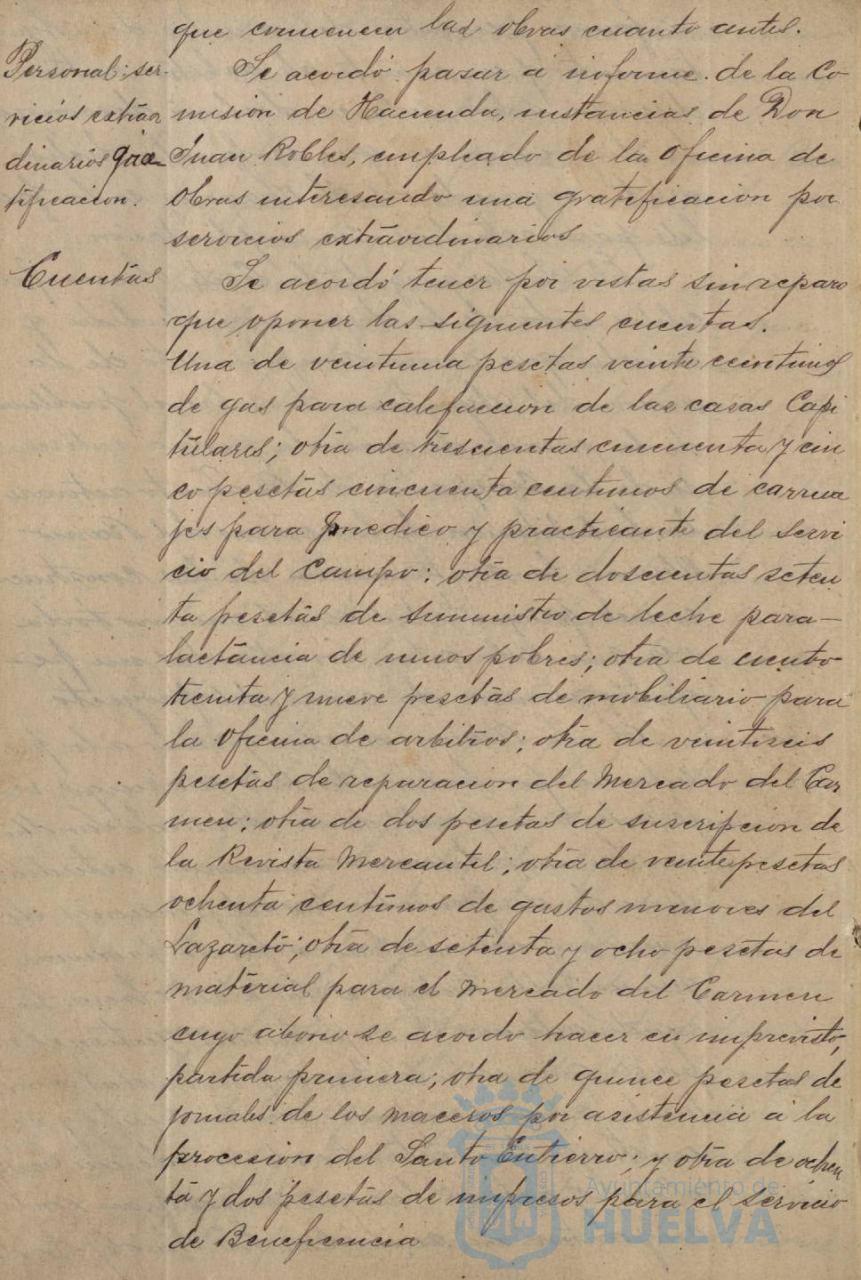 que comiencen las obras cuanto antes.
Personal: ser-
vicios extraor
dinarios grac
tificacion.
Se acordó pasar á informe de la Co
misión de Hacienda, instancias de Don
Juan Robles, empleado de la oficina de
Obras interesando una gratificacion por
servicios extraordinarios
Cuentas
Se acordó tener por vistas sin reparo
que oponer las siguientes cuentas.
Una de veintiuna pesetas veinte centimos
de gas para calefaccion de las casas Capi
tulares; otra de trescientas cincuenta y cin
co pesetas cincuenta centimos de carrua
jes para medico y practicante del servi
cio del Campo; otra de doscientas seten
ta pesetas de suministro de leche para
lactancia de niños pobres; otra de ciento
treinta y nueve pesetas de mobiliario para
la oficina de arbitrios; otra de veintiseis
pesetas de reparacion del Mercado del Car
men; otra de dos pesetas de suscripcion de
la Revista Mercantil; otra de veinte pesetas
ochenta centimos de gastos menores del
Lazareto; otra de setenta y ocho pesetas de
material para el mercado del Carmen
cuyo abono se acordo hacer en imprevisto,
partida primera; otra de quince pesetas de
jornales de los maceros por asistencia á la
procesion del Santo Entierro; y otra de ochen
ta y dos pesetas de impresos para el servicio
de Beneficencia
Ayuntamiento de
HUELVA